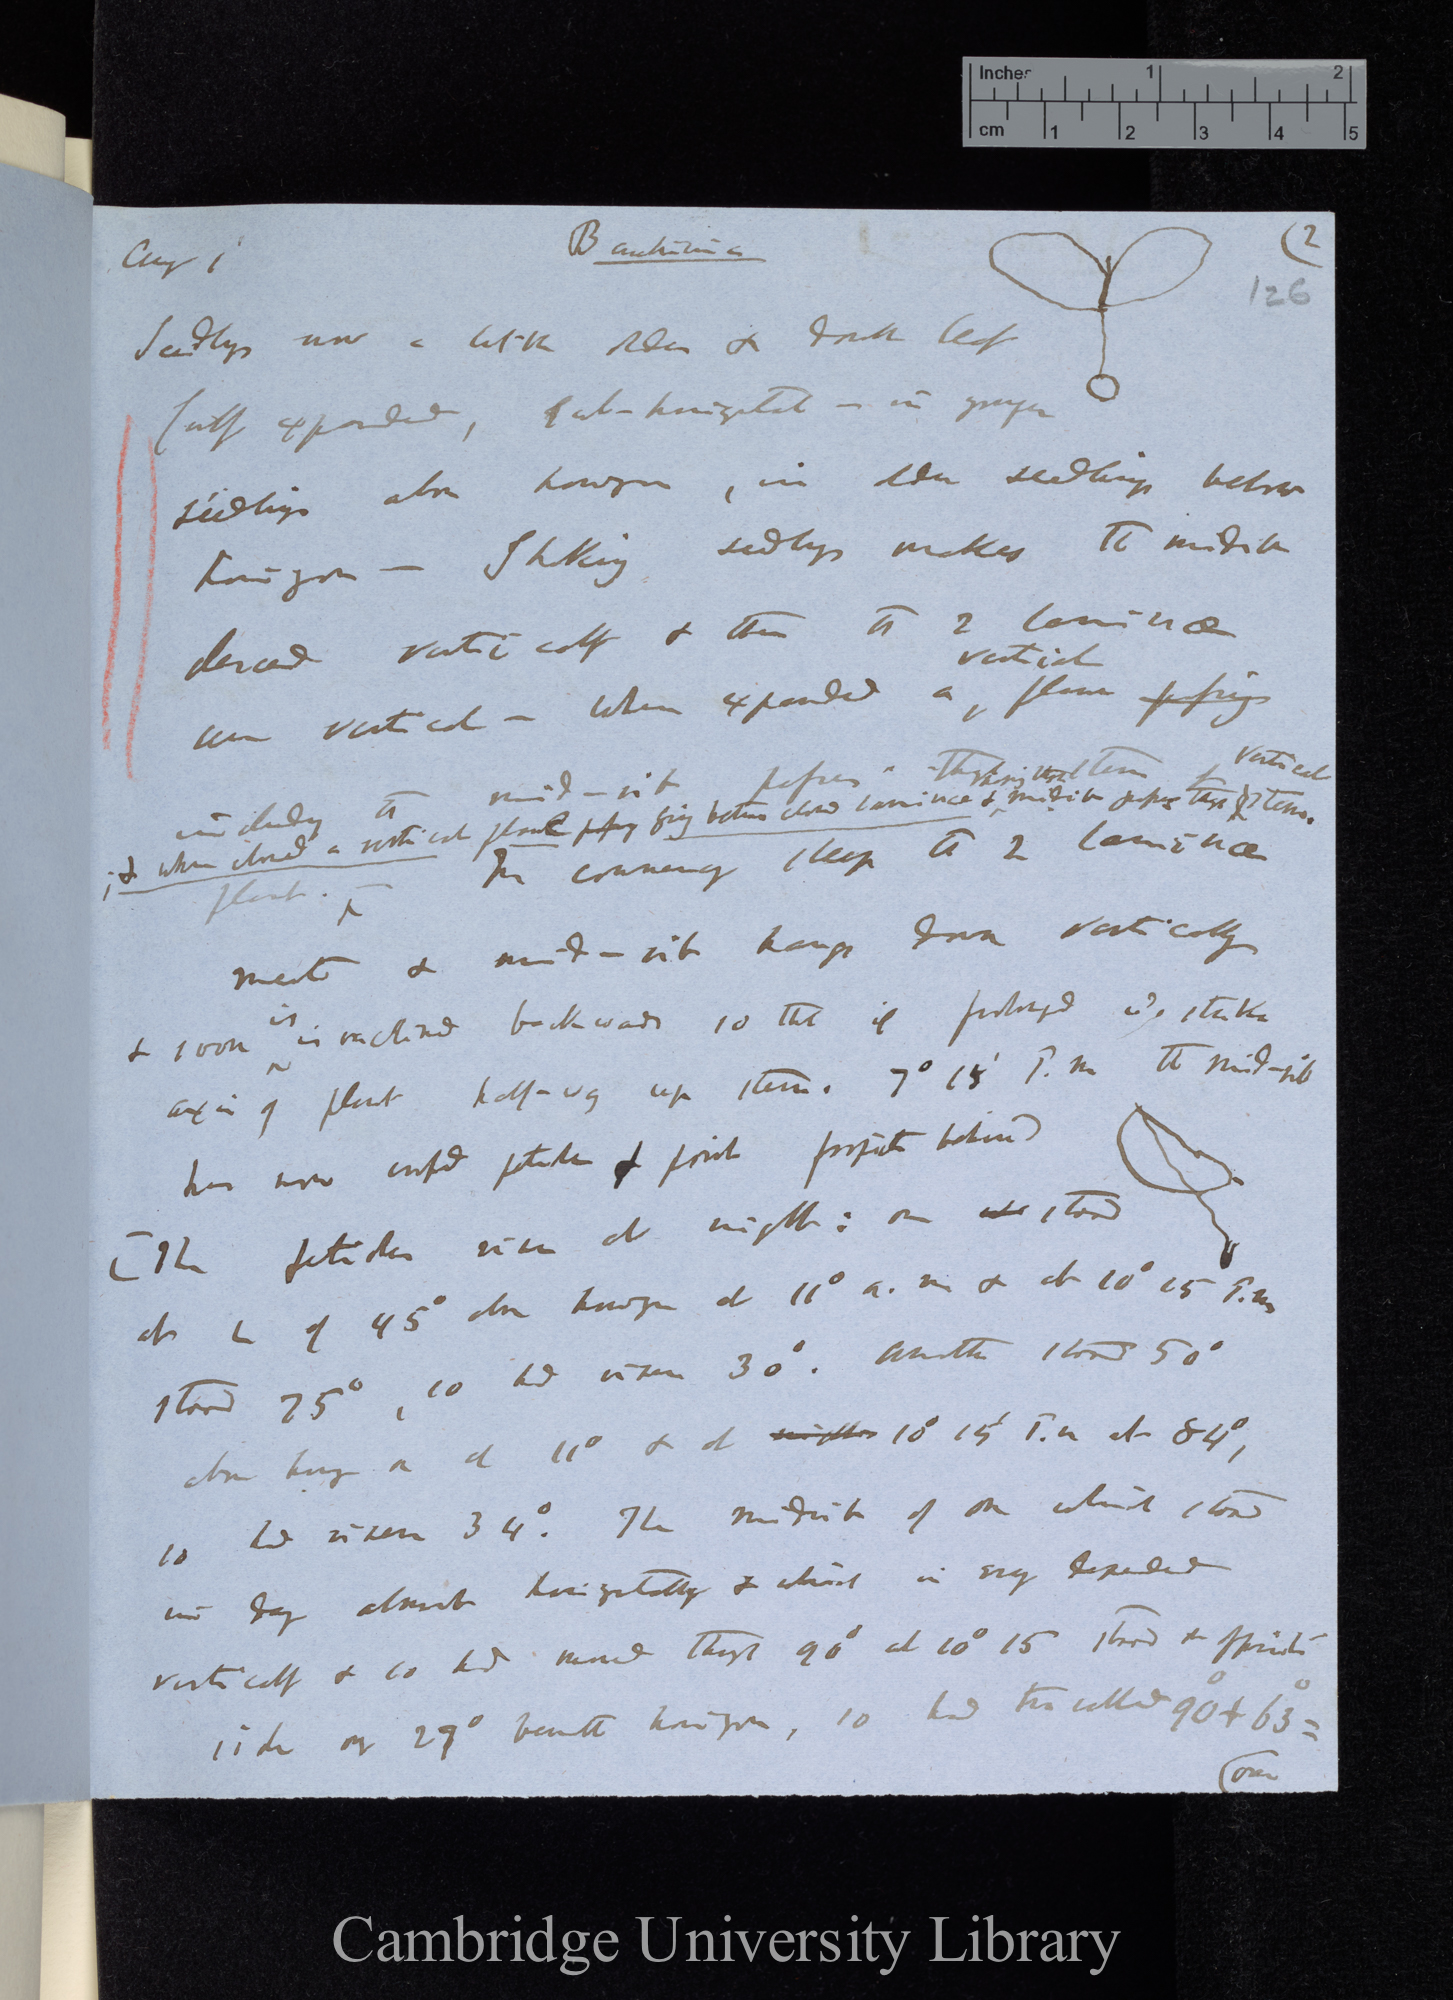 Inches 1 2
cm 1 2 3 4 5
(2
126
Aug 1 Bauhinia
Seedlings now a little older & double leaf
fully expanded, sub-horizontal — in younger
seedlings above horizon, in older seedlings below
horizon — Shaking seedlings makes the midrib
descend vertically & then the 2 laminæ
are vertical — when expanded a vertical plane passing
including the mid-rib passes through stem of vertical
; & when closed a vertical plane passing between closed laminæ & midrib passes through stem.
plant. — In commencing sleep the 2 laminæ
meet & mid-rib hangs down vertically
& soon is inclined backwards so that if prolonged wd. strike
axis of plant half-way up stem. 7° 15' P.m the mid-rib
has now crossed petiole & point projects behind
[The petioles rise at night: one stood
at L of 45° above horizon at 11° a.m & at 10° 15 P.m
stood 75°, so had risen 30°. Another stood 50°
above horizon at 11° & at night 10° 15' P.m at 84°,
so had risen 34°. The midrib of one which stood
in day almost horizontally & which in evg depended
vertically & so had moved through 90° at 10° 15 stood on opposite
side only 27° beneath horizon, so had travelled 90° + 63° =
(over
Cambridge University Library